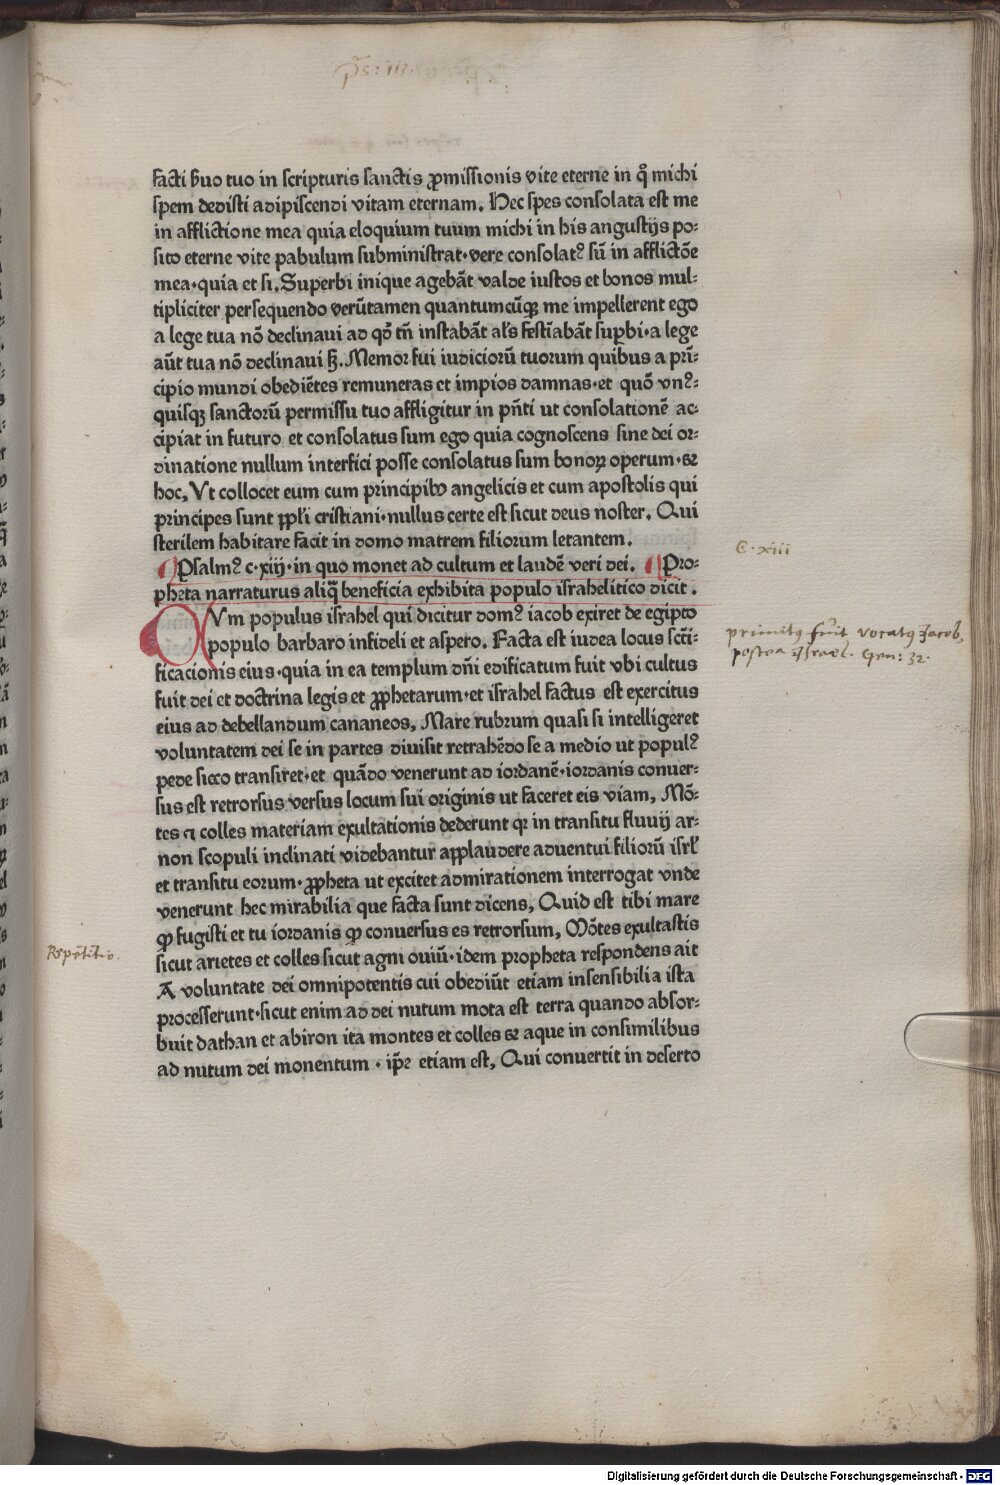 ps: 113.
facti ẜuo tuo in scripturis sanctis ꝓmissionis vite eterne in q̊ michi
spem dedisti adipiscendi vitam eternam. Hec spes consolata est me
in afflictione mea quia eloquium tuum michi in his angustijs po⸗
sito eterne vite pabulum subministrat·vere consolatꝰ sū in afflictōe
mea·quia et si. Superbi inique agebāt valde iustos et bonos mul⸗
tipliciter persequendo verūtamen quantumcūqꝫ me impellerent ego
a lege tua nō declinaui ad qđ tñ instabāt als festīabāt suꝑbi·a lege
aūt tua nō declinaui sꝫ. Memor fui iudiciorū tuorum quibus a prī⸗
cipio mundi obediētes remuneras et impios damnas·et quō vnꝰ⸗
quisqꝫ sanctorū permissu tuo affligitur in pñti ut consolationē ac⸗
cipiat in futuro et consolatus sum ego quia cognoscens sine dei or⸗
dinatione nullum interfici posse consolatus sum bonoꝝ operum·⁊
hoc, Vt collocet eum cum principibꝰ angelicis et cum apostolis qui
principes sunt ppli cristiani·nullus certe est sicut deus noster. Qui
sterilem habitare facit in domo matrem filiorum letantem.
C·xiii
Psalmꝰ c·xiij·in quo monet ad cultum et laudē veri dei. Pro⸗
pheta narraturus aliq̄ beneficia exhibita populo israhelitico dicit.
QVm populus israhel qui dicitur domꝰ iacob exiret de egipto
populo barbaro infideli et aspero. Facta est iudea locus scti⸗
primitꝰ fuit vocatꝰ Jacob,
postea Israel. Gen: 32.
ficacionis eius·quia in ea templum dñi edificatum fuit vbi cultus
fuit dei et doctrina legis et ꝓphetarum·et israhel factus est exercitus
eius ad debellandum cananeos, Mare rubrum quasi si intelligeret
voluntatem dei se in partes diuisit retrahēdo se a medio ut populꝰ
pede sicco transiret·et quādo venerunt ad iordanē·iordanis conuer⸗
sus est retrorsus versus locum sui originis ut faceret eis viam, Mō⸗
tes ⁊ colles materiam exultationis dederunt qꝛ in transitu fluuij ar⸗
non scopuli inclinati videbantur applaudere aduentui filiorū isrl
et transitu eorum·ꝓpheta ut excitet admirationem interrogat vnde
venerunt hec mirabilia que facta sunt dicens, Quid est tibi mare
ꝙ fugisti et tu iordanis ꝙ conuersus es retrorsum, Mōtes exultastis
Repētitio.
sicut arietes et colles sicut agni ouiū·idem propheta respondens ait
A voluntate dei omnipotentis cui obediūt etiam insensibilia ista
processerunt·sicut enim ad dei nutum mota est terra quando absor⸗
buit dathan et abiron ita montes et colles ⁊ aque in consimilibus
ad nutum dei monentum · ip̄e etiam est, Qui conuertit in deserto
Digitalisierung gefördert durch die Deutsche Forschungsgemeinschaft · DFG